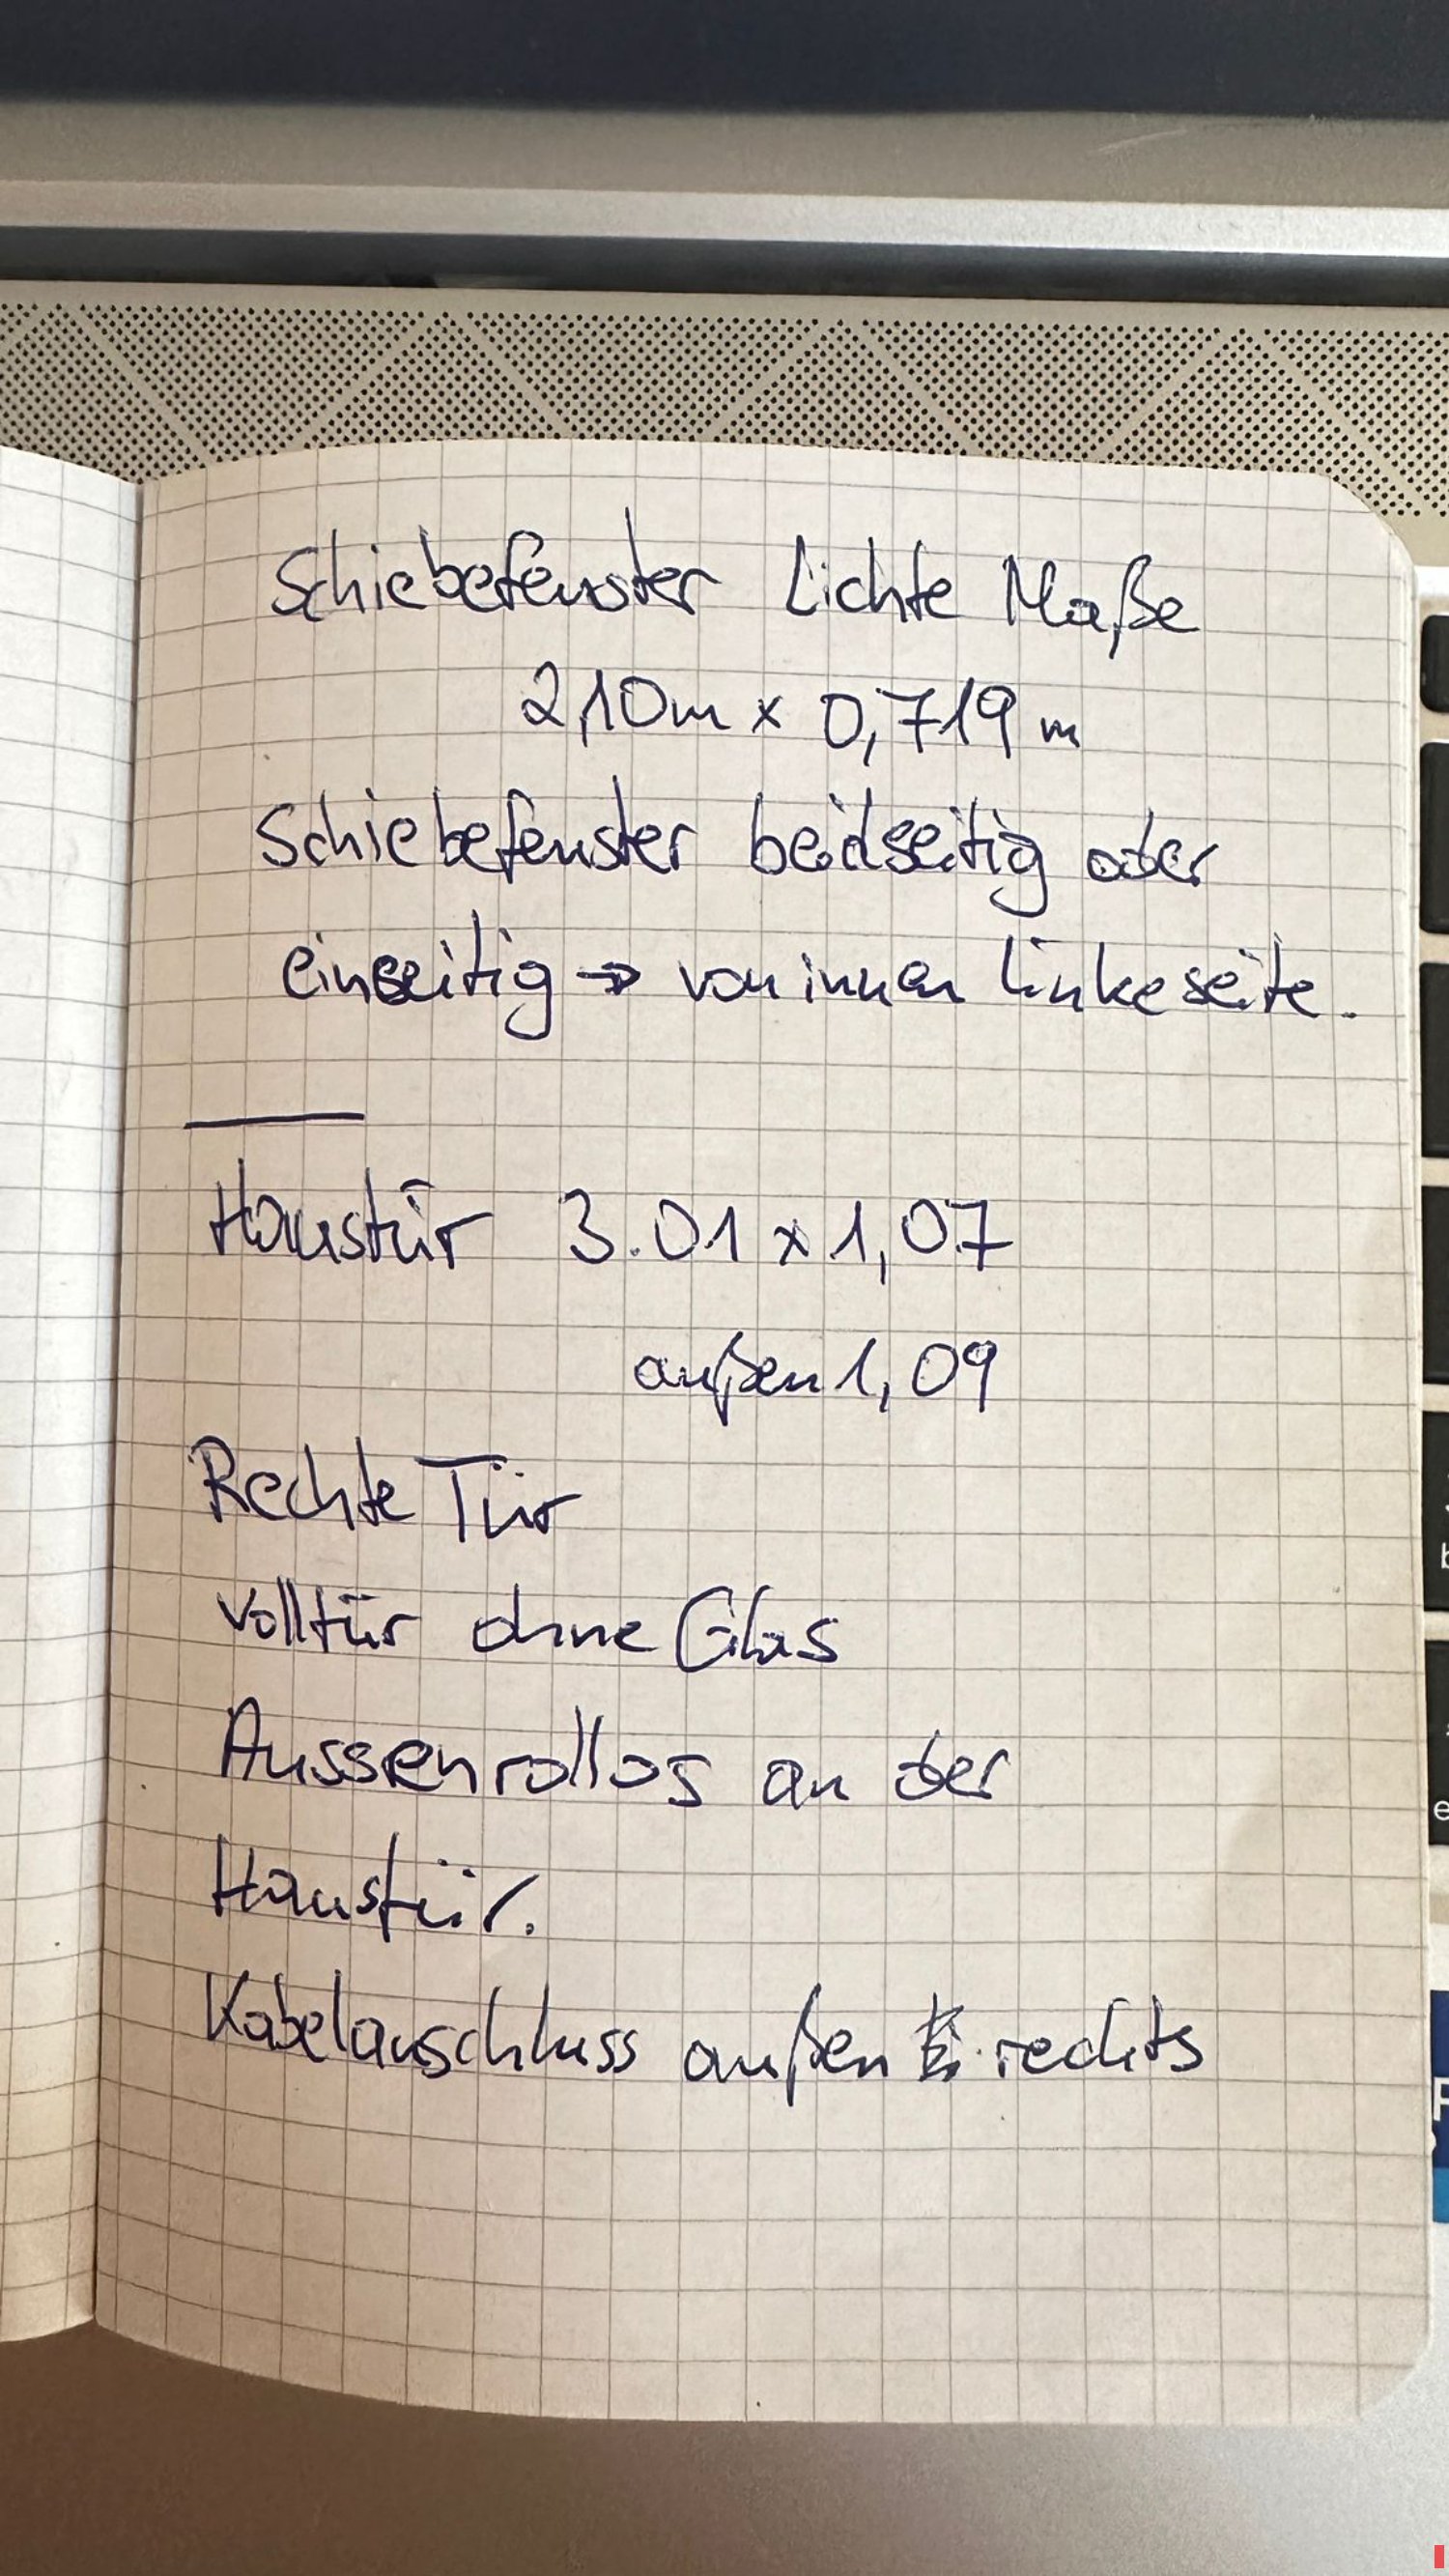 Schiebefenster Lichte Maße
2,10m x 0,719 m
Schiebefenster beidseitig oder
einseitig → von innen linke seite.
Haustür 3.01 x 1,07
außen 1,09
Rechte Tür
Volltür ohne Glas
Aussenrollos an der
Haustür.
Kabelanschluss außen rechts